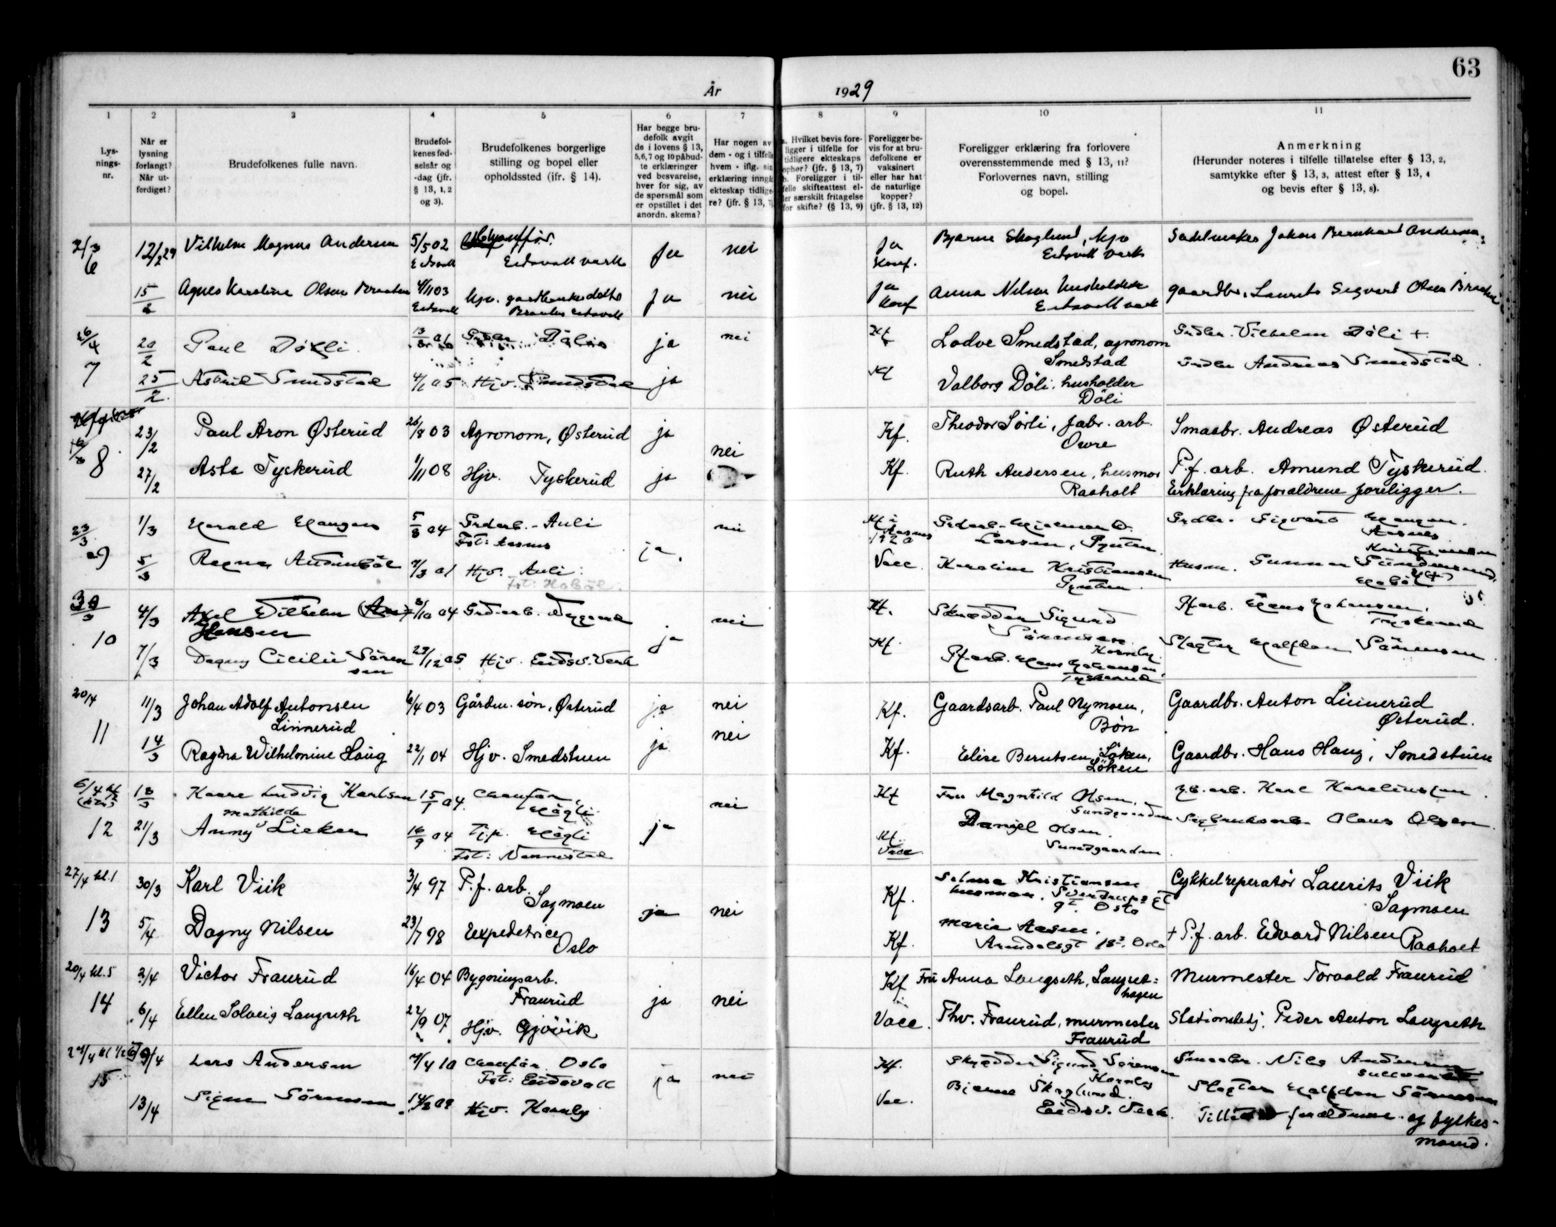 63
År 1929
1 2 3 4 5 6 7 8 9 10 11
Lys-
nings-
nr.
Når er
lysning
forlangt?
Når ut-
ferdiget?
Brudefolkenes fulle navn.
Brudefol-
kenes fød-
selsår og
-dag (jfr.
§ 13, 1, 2
og 3).
Brudefolkenes borgerlige
stilling og bopel eller
opholdssted (ifr. § 14).
Har begge bru-
defolk avgit
de i lovens § 13,
5,6,7 og 10 påbud-
te erklæringer
ved besvarelse,
hver for sig, av
de spørsmål som
er opstillet i det
anordn. skema?
Har nogen av
dem - og i tilfelle
hvem - iflg. sin
erklæring inngåt
ekteskap tidlige-
re? (jfr. § 13, 7)
Hvilket bevis fore-
ligger i tilfelle for
tidligere ekteskaps
ophør? (jfr. § 13, 7)
Foreligger i til-
felle skifteattest el-
ler særskilt fritagelse
for skifte? (§ 13, 9)
Foreligger be-
vis for at bru-
defolkene er
vaksinert
eller har hat
de naturlige
kopper?
(jfr. § 13, 12)
Foreligger erklæring fra forlovere
overensstemmende med § 13, 11?
Forlovernes navn, stilling
og bopel.
Anmerkning
(Herunder noteres i tilfelle tillatelse efter § 13, 2,
samtykke efter § 13, 3, attest efter § 13, 4
og bevis efter § 13, 8).
2/3 12/2 29 Vilhelm Magnus Andersen 5/5 02 nei ja Bjarne Skoglund, hjv Sadelmaker Johan Bernhard Andersen
6 Eidsvoll Eidsvoll verk ja Konf. Eidsvoll verk
15/2 Agnes Karoline Olsen Braaten 4/11 03 hjv. gaardbrukerdatter ja nei ja Anna Nilsen husholderske gaardbr. Laurits Sigvart Olsen Braaten
Eidsvoll Braaten Eidsvoll konf Eidsvoll verk
16/4 20/2 Paul Döhli ja nei Kf Lodve Smedstad, agronom Gaardbr. Vilhelm Döli +
Smedstad
7 25/2 Astrid Smedstad 4/1 05 Hjv. Smedstad ja Kf Valborg Döli, husholder Gaardbr. Andreas Smedstad
Döli
23/2 Paul Aron Østerud 26/8 03 Agronom, Østerud ja Kf. Theodor Sörli, fabr. arb. Smaabr. Andreas Østerud
8 nei Ovre
27/2 Asta Tyskerud 1/11 08 Hjv. Tyskerud ja Kf. Ruth Andersen, husmor P.f. arb. Amund Tyskerud.
Raaholt Erklæring fra forældrene foreligger.
23/3 1/3 Harald Hansen 5/8 04 Gardarb. Auli nei Gardarb. Hjalmar Gardbr. Sigvard Hansen
Fst: Aasnes Larsen, Aasnes
9 5/3 Ragna 7/3 01 Hjv. Auli. ja. Vacc. Karoline Kristiansen Husm. Gunnar
30/3 4/3 Axel Vilhelm 04 Gardarb. nei Kf. Skrædder Sigurd Pfarb. Hans Johansen,
Hansen Sörensen Tyskerud
10 7/3 Dagny Cicilie Sören 23/12 05 Hjv. Eidsv. Verk ja Kf. Kornby Slagter Halfdan Sörensen.
sen Pfarb. Hans Johansen
Tyskerud.
20/4 11/3 Johan Adolf Antonsen 6/4 03 Gårdm. sön, Østerud ja nei Kf. Gaardsarb. Paul Nymoen, Gaardbr. Anton Linnerud
Linnerud Bön Østerud.
11 14/3 Ragna Wilhelmine Haug 22/1 04 Hjv. Smedstuen ja nei Kf. Elise Berntsen, Löken, Gaardbr. Hans Haug, Smedstuen
Löken
6/4 18/3 Kaare Ludvig Karlsen 15/1 04. Chauffør nei Kf Fru Magnhild Olsen, arb. Karl Karelinsen.
Mathilde Høgli. Sundgaarden
12 21/3 Anny Lieken 16/9 04 Tjp. Høgli ja Kf. Daniel Olsen. Sagbruksarb. Olaus Olsen.
Fst: Nannestad Vacc Sundgaarden
27/4 kl. 1 30/3 Karl Viik 3/4 97 P.f. arb. Kf. Selma Kristiansen Cykkelreperatør Laurits Viik
Sagmoen gt. Oslo Sagmoen
13 5/4 Dagny Nilsen 23/7 98 Eexpeditrice ja nei Kf. Maria Aasen. + P.f. arb. Edvard Nilsen
Oslo Arendalsgt 18², Oslo Raaholt
20/4 kl. 5 2/4 Victor Fraurud 16/4 04 Bygningsarb. Kf Frü Anna Langseth, Langset- Murmester Torvald Fraurud
Fraurud hagen
14 6/4 Ellen Solveig Langseth 22/9 07 Hjv. Gjövik ja nei Vacc. Thv. Fraurud, murmester Stationsbetj. Peder Anton Langseth
Fraurud
9/4 Lars Andersen 10 Chauffør. Oslo Kf. Skrædder Sigurd Sörensen Smaabr. Nils Andersen
15 Fst: Eidsvoll ja nei Kornby
13/4 Signe Sörensen 09 Hjv. Kornby Vac. Bjarne Skoglund. Slagter Halfdan Sörensen
Eidsv. Verk. forældrene og fylkes-
mand.